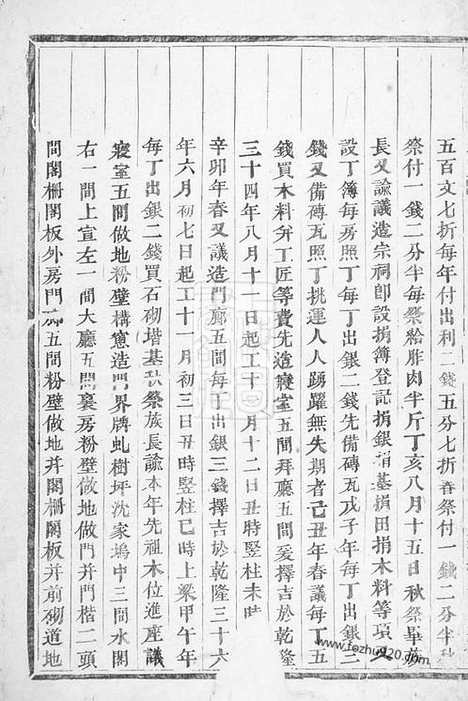 五百文七折每年付出利二錢五分七折春祭付一錢二分半秋
祭付一錢二分半每祭給胙肉半斤丁亥八月十五日秋祭畢族
長又諭議造宗祠即設捐簿登記捐銀捐基捐田捐木料等項又
設丁簿每房每丁出銀二錢先備磚瓦戊子年每丁出銀二
錢又備磚瓦照丁挑運人人踴躍無失期者己丑年春議每丁五
錢買木料弁工匠等費先造寢室五間拜廳五間爰擇吉於乾隆
三十四年八月十一日起工十一月十二日丑時豎柱未時
辛卯年春又議造門廊五間每丁出銀三錢擇吉於乾隆三十六
年六月初七日起工十一月初三日丑時豎柱巳時上梁甲午年
每丁出銀二錢買石砌堦基秋祭族長諭本年先祖木位進座議
寢室五間做地粉壁構窻造門界牌虬樹坪沈家塢中三間水閣
右一間上宣左一間大廳五間裏房粉壁做地做門并門楷二頭
間閣柵閣板外房門廊五間粉壁做地并閣柵閣板并前砌道地
www.fozhu920.com